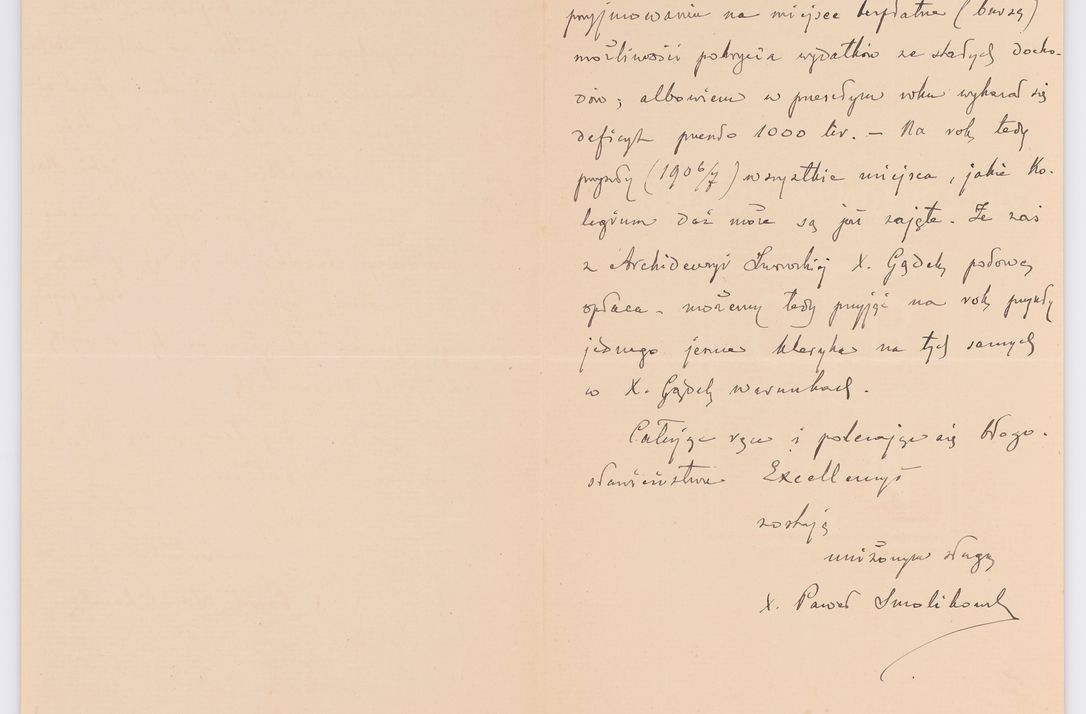 przyjmowania na miejsce bezpłatne (bursę)
możliwości pokrycia wydatków ze stałych docho-
dów; albowiem w przeszłym roku wykazał się
deficyt ponad 1000 lir. — Na rok tedy
przyszły (1906/7) wszystkie miejsca, jakie Ko-
legium dać może są już zajęte. Że zaś
z Archidecezyi Lwowskiej X. Gądek połowę
opłaca - możemy tedy przyjąć na rok przyszły
jednego jeszcze kleryka na tych samych
co X. Gądek warunkach.
Całując ręce i polecając się błogo-
sławieństwu Excellencyi
zostaję
uniżonym sługą
X. Paweł Smolikowski